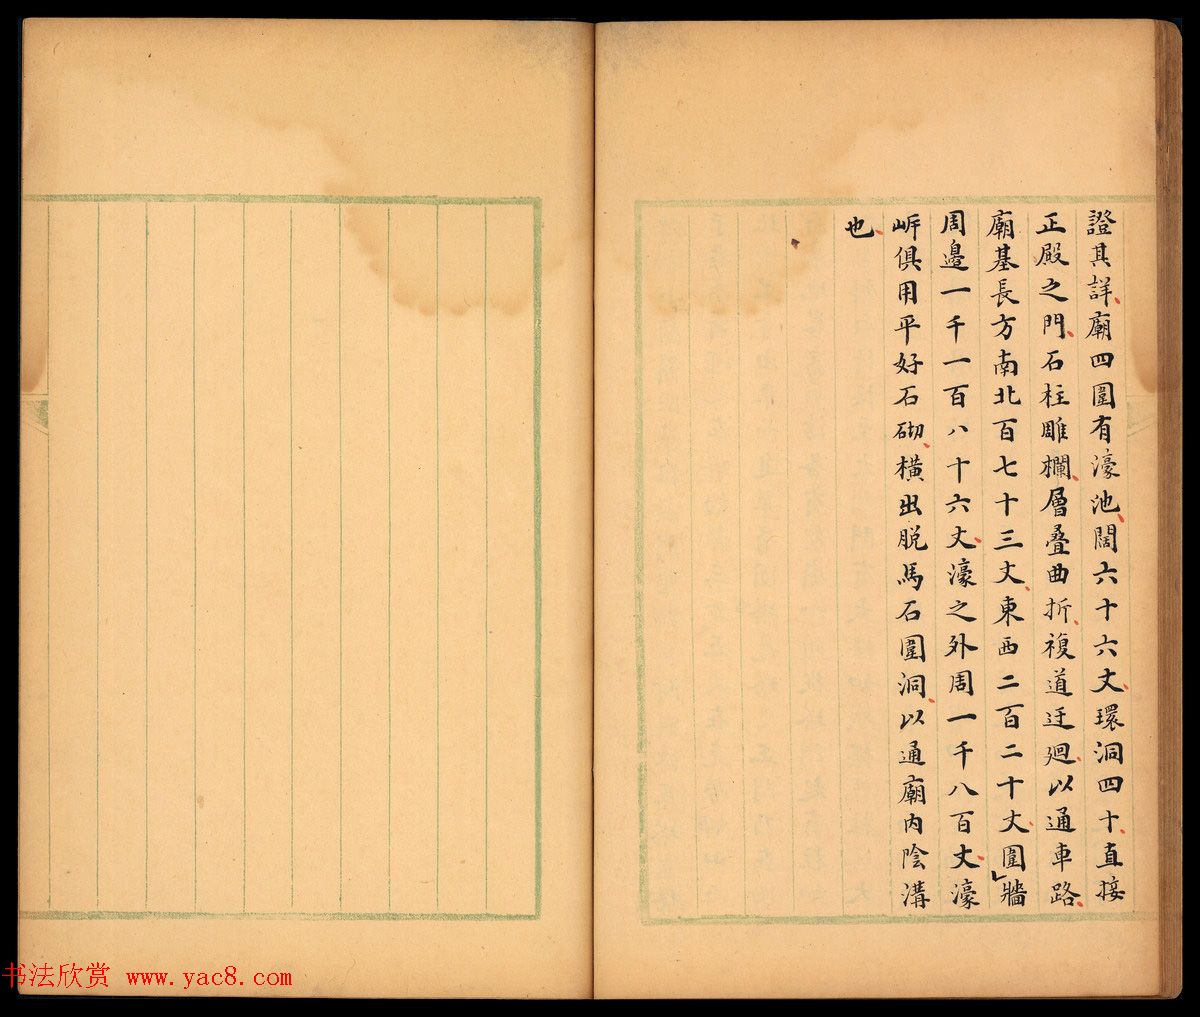 證其詳廟四圍有濠池闊六十六丈環洞四十直接
正殿之門石柱雕欄層疊曲折複道迂迴以通車路
廟基長方南北百七十三丈東西二百二十丈圍牆
周邊一千一百八十六丈濠之外周一千八百丈濠
岍俱用平好石砌橫出脱馬石圍洞以通廟內陰溝
也
书法欣赏 www.yac8.com